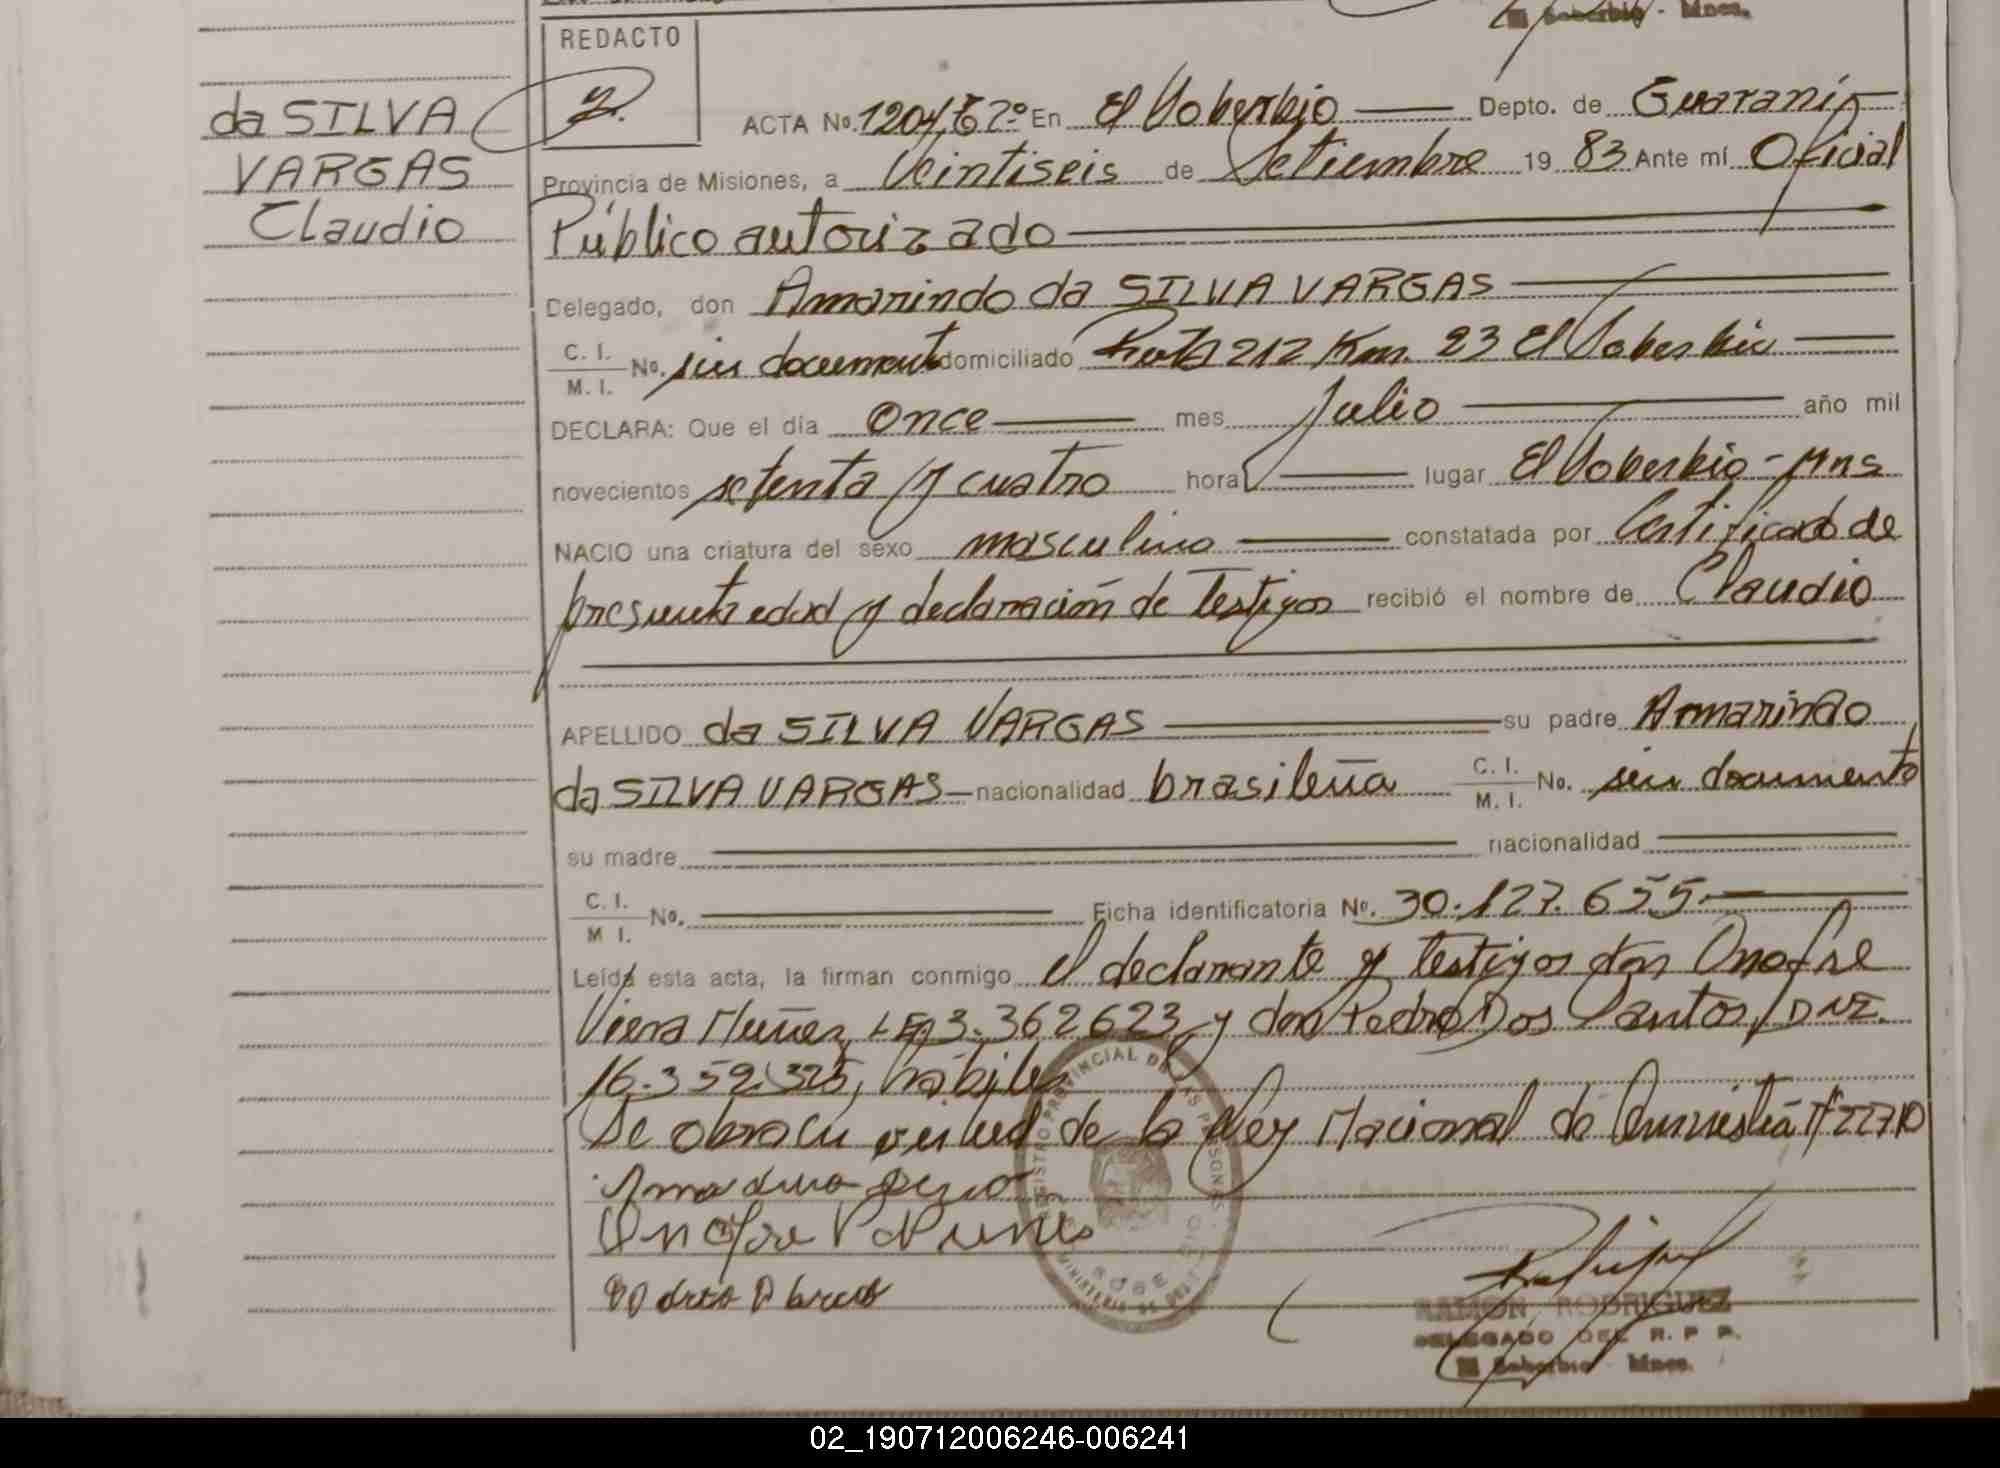 REDACTO
da SILVA
VARGAS
Claudio
ACTA No. 1204, Tº 7º En El Soberbio Depto. de Guaraní
Provincia de Misiones, a Veintiseis de Setiembre 19 83 Ante mí Oficial
Público autorizado
Delegado, don Amarindo da SILVA VARGAS
C. I. / M. I. No. sin documento domiciliado Ruta 212 Km. 23 El Soberbio
DECLARA: Que el día Once mes Julio año mil
novecientos setenta y cuatro hora lugar El Soberbio - Mns
NACIO una criatura del sexo masculino constatada por Certificado de
presunta edad y declaración de testigos recibió el nombre de Claudio
APELLIDO da SILVA VARGAS su padre Amarindo
da SILVA VARGAS nacionalidad brasileña C. I. / M. I. No. sin documento
su madre nacionalidad
C. I. / M I. No. Ficha identificatoria No. 30.127.655.
Leída esta acta, la firman conmigo el declarante y testigos don Onofre
Viera Nuñez, L.E. 3.362623 y don Pedro Dos Santos, DNI.
16.359.325, hábiles
Se obra en virtud de la Ley Nacional de Amnistía Nº 22710
Onofre V Nunes
RAMON RODRIGUEZ
DELEGADO DEL R. P. P.
El Soberbio - Mnes.
REGISTRO PROVINCIAL DE LAS PERSONAS
02_190712006246-006241